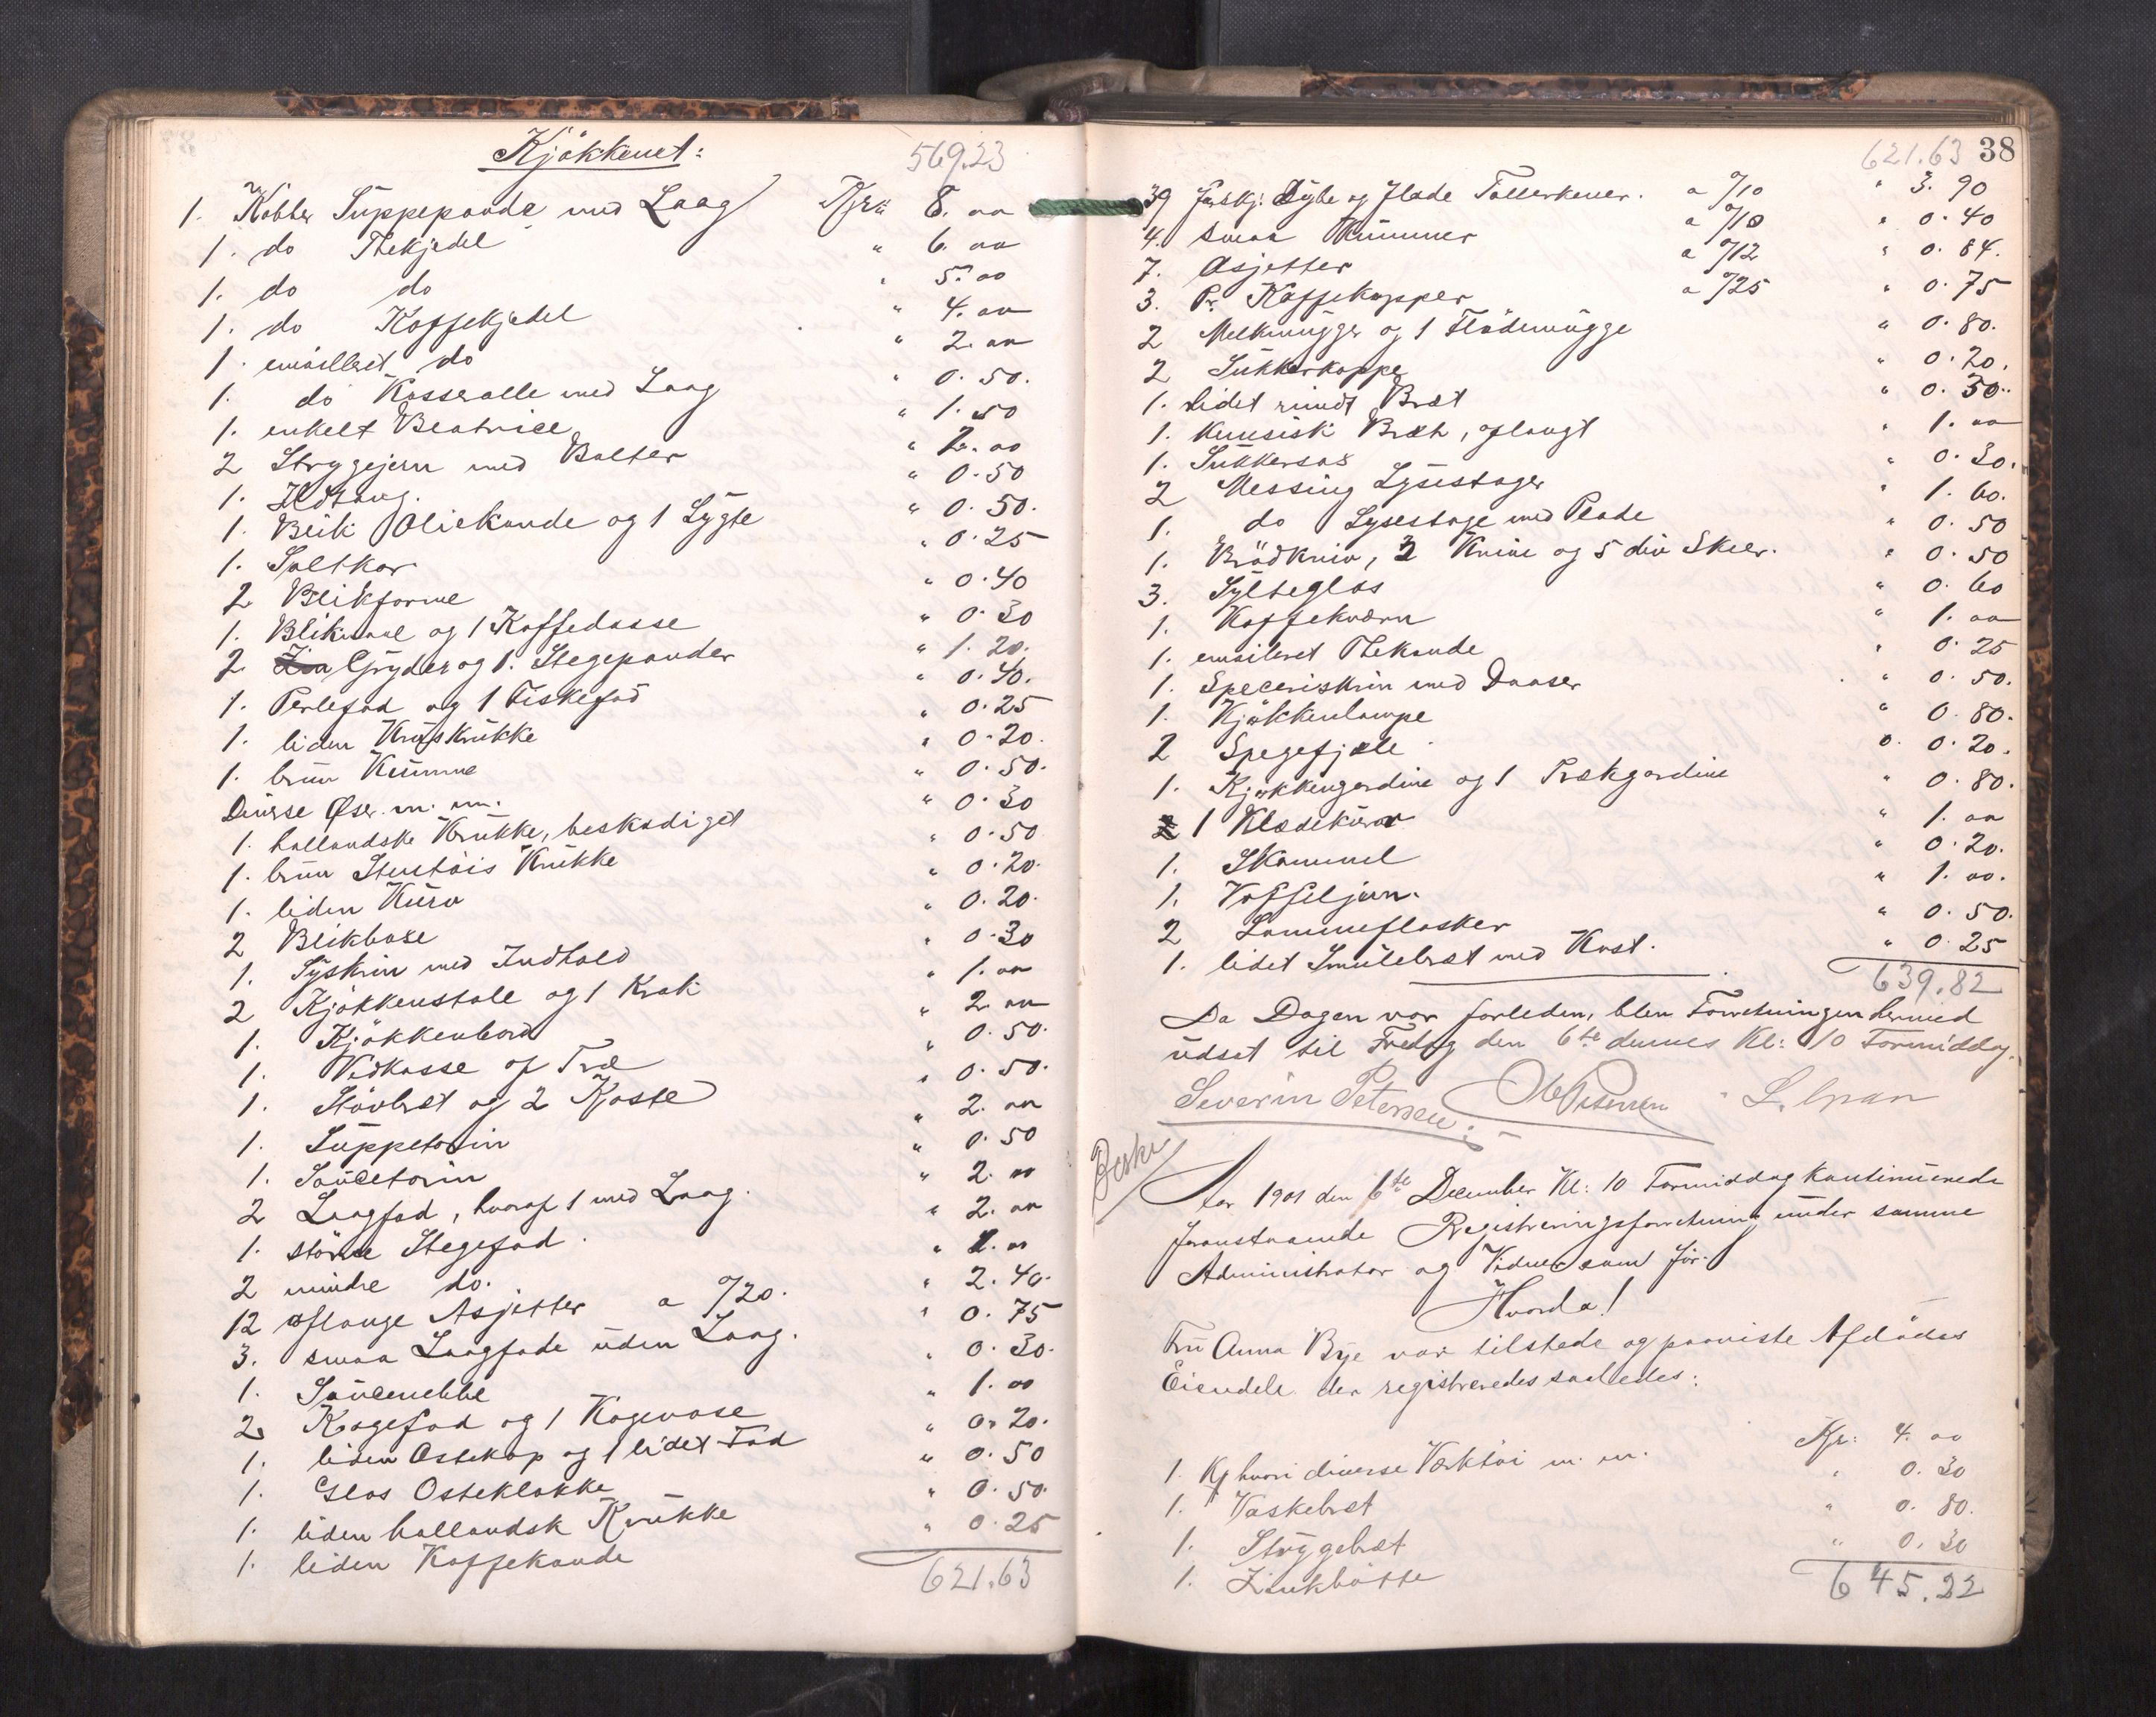 Kjøkkenet: 569.23
1. Kobber Suppepande med Laag Kr: 8. 00
1. do Thekjedel " 6. 00
1. do do " 5. 00
1. do Kaffekjedel " 4. 00
1. emailleret do " 2. 00
1. do Kasserolle med Laag " 0. 50.
1. enkelt Beatrice " 1. 50
2 Strygejern med Bolter " 2. 00
1. Ildtang. " 0. 50
1. Blik Oliekande og 1 Lygte " 0. 50.
1. Saltkar " 0. 25
2 Blikforme " 0. 40
1. Blikmaal og 1 Kaffedaase " 0. 30
2 Gryder og 1. Stegepander " 1. 20.
1. Perlefad og 1 Fiskefad " 0. 40.
1. liden Kruskrukke " 0. 25
1. brun Kumme " 0. 20.
Diverse Øser m. m. " 0. 50.
1. hollandske Krukke, beskadiget " 0. 30
1. brun Stentøis Krukke " 0. 50
1. liden Kurv " 0. 20.
2 Blikbokse " 0. 20.
1. Syskrin med Indhold " 0. 30
2 Kjøkkenstole og 1 Krak " 1. 00
1. Kjøkkenbord " 2. 00
1. Vedkasse af Træ " 0. 50.
1. Støvbræt og 2 Koste " 0. 50.
1. Suppeterin " 2. 00
1. Sauceterin " 0. 50
2 Laagfad, hvoraf 1 med Laag. " 2. 00
1. større Stegefad. " 2. 00
2 mindre do. " 2. 00
12 aflange Asjetter a %20. " 2. 40.
3. smaa Laagfade uden Laag. " 0. 75
1. Saucenebbe " 0. 30.
2 Kagefad og 1 Kagevase " 1. 00
1. liden Ostekop og 1 lidet Fad " 0. 20.
1. Glas Osteklokke " 0. 50
1. liden hollandsk Krukke " 0. 50.
1. liden Kaffekande " 0. 25
621.63
621.63 38
39 forskj. Dybe og flade Tallerkener. a %10 " 3. 90
4. smaa Kummer a %10 " 0. 40
7. Asjetter a %12 " 0. 84.
3. Pr. Kaffekopper a %25 " 0. 75
2 Melkemugger og 1 Flødemugge " 0. 80.
2 Sukkerkopper " 0. 20.
1. lidet rundt Bræt " 0. 30.
1. kinesisk Bræt, aflangt " 1. 00
1. Sukkersax " 0. 30.
2 Messing Lysestager " 1. 60.
1. do Lysestage med Plade " 0. 50
1. Brødkniv, 2 Knive og 5 div Skeer. " 0. 50
3. Sylteglas " 0. 60
1. Kaffekværn " 1. 00
1. emaileret Thekande " 0. 25
1. Speceriskrin med Daaser " 0. 50.
1. Kjøkkenlampe " 0. 80.
2 Spegefjæle " 0. 20.
1. Kjøkkengardine og 1 Trækgardine " 0. 80.
1 Klædekurv " 1. 00
1. Skammel " 0. 20.
1. Vaffeljern. " 1. 00.
2 Lommeflasker " 0. 50.
1. lidet Smulebræt med Kost. " 0. 25
639.82
Da Dagen var forleden, blev Forretningen hermed
udsat til Fredag den 6te dennes Kl: 10 Formiddag.
Severin Petersen
Aar 1901 den 6te December Kl: 10 Formiddag kontinuerede
foranstaaende Registreringsforretning under samme
Administrator og Vidner som før.
Hvorda!
Fru Anna Bye var tilstede og paaviste Afdødes
Eiendele der registreredes saaledes:
1. hvori diverse Verktøi m. m. Kr: 4. 00
1. Vaskebræt " 0. 30
1. Strygebræt " 0. 80.
1. Zinkbøtte " 0. 30
645.22